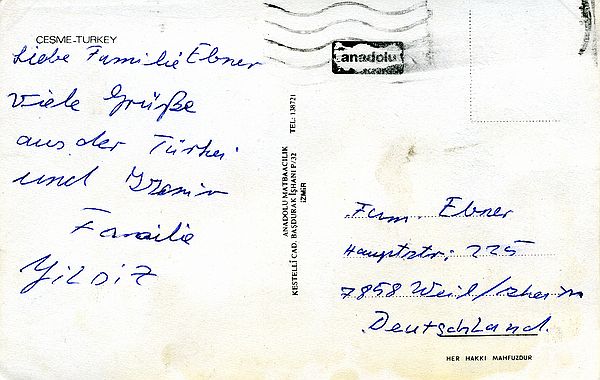 CESME-TURKEY
Liebe Familie Ebner
Viele Grüße
aus der Türkei
und Izmir
Familie
YiLDiZ
anadolu
ANADOLU MATBAACILIK TEL: 138721
KESTELLİ CAD. BAŞDURAK İŞHANI P/32
İZMİR
Fam. Ebner
Hauptstr: 225
7858 Weil/Rhein
Deutschland.
HER HAKKI MAHFUZDUR